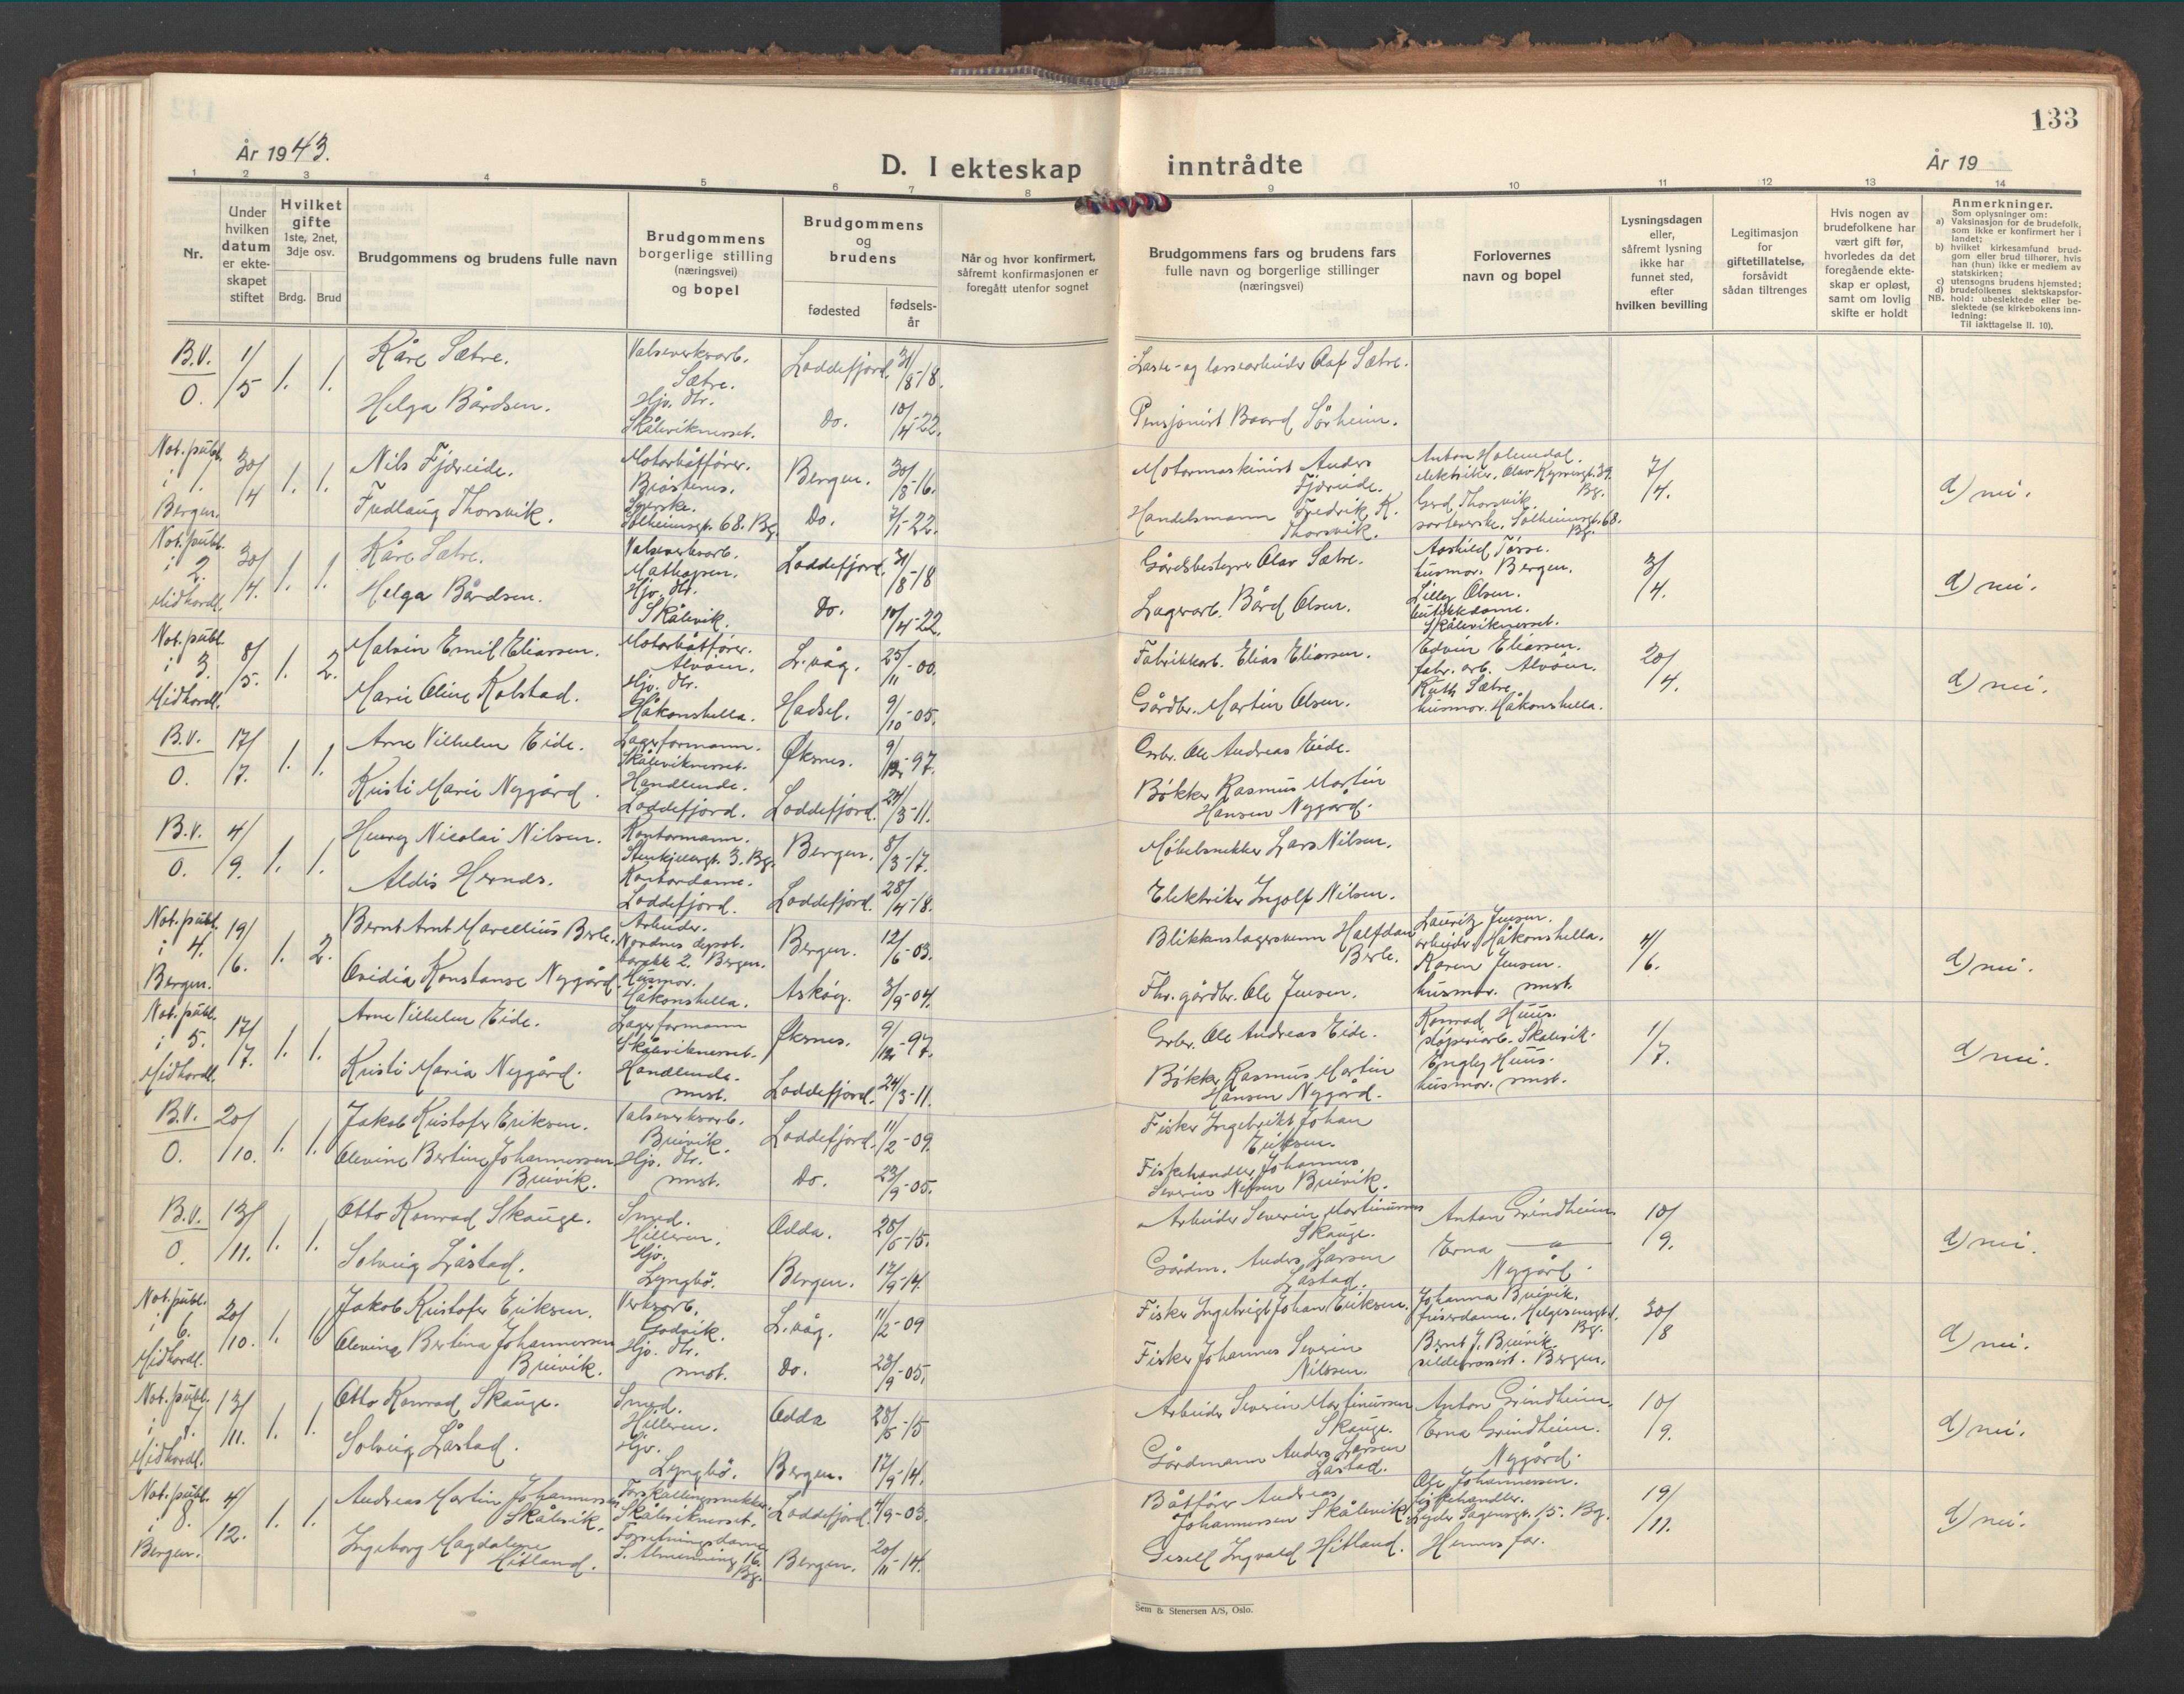 133
År 1943.
D. I ekteskap inntrådte
År 19
1 2 3 4 5 6 7 8 9 10 11 12 13 14
Nr.
Under hvilken datum er ekteskapet stiftet
Hvilket gifte
1ste, 2net, 3dje osv.
Brdg. Brud
Brudgommens og brudens fulle navn
Brudgommens borgerlige stilling (næringsvei) og bopel
Brudgommens og brudens
fødested
fødsels-år
Når og hvor konfirmert, såfremt konfirmasjonen er foregått utenfor sognet
Brudgommens fars og brudens fars fulle navn og borgerlige stillinger (næringsvei)
Forlovernes navn og bopel
Lysningsdagen eller, såfremt lysning ikke har funnet sted, efter hvilken bevilling
Legitimasjon for giftetillatelse, forsåvidt sådan tiltrenges
Hvis nogen av brudefolkene har vært gift før, hvorledes da det foregående ekteskap er opløst, samt om lovlig skifte er holdt
Anmerkninger.
Som oplysninger om:
a) Vaksinasjon for de brudefolk, som ikke er konfirmert her i landet;
b) hvilket kirkesamfund brudgom eller brud tilhører, hvis han (hun) ikke er medlem av statskirken;
c) utensogns brudens hjemsted;
d) brudefolkenes slektskapsforhold: ubeslektede eller beslektede (se kirkebokens innledning:
NB.
Til iakttagelse II. 10).
B.V. 0. 1/5 1. 1. Kåre Sætre. Valseverksarb. Sætre. Loddefjord. 31/8-18. Laste- og lossearbeider Olaf Sætre.
Helga Bårdsen. Hjv. dtr. Skåleviknesset. Do. 10/4-22. Pensjonist Baard Sørheim.
Not. publ. i 1. Bergen. 30/4 1. 1. Nils Fjæreide. Motorbåtfører. Bergen. 30/8-16. Motormaskinist Anders Fjæreide. Anton Holmedal. elektriker. Olav Kyrresgt. 39. Bg. 7/4. d) nei.
Fredlaug Thorsvik. Syerske. Solheimsgt. 68. Bg. Do. 7/1-22. Handelsmann Fredrik K. Thorsvik. Gerd Thorsvik. Solheimsgt. 68. Bg.
Not. publ. i 2. Midhordl. 30/4. 1. 1. Kåre Sætre. Valseverksarb. Mathopen. Loddefjord. 31/8-18 Gårdsbestyrer Olav Sætre. husmor. Bergen. 3/4. d) nei.
Helga Bårdsen. Hjv. dtr. Skålevik. Do. 10/4-22. Lagerarb. Bård Olsen. Lilly Olsen. butikkdame. Skåleviknesset.
Not. publ. i 3. Midhordl. 8/5. 1. 2. Malvin Emil Eliassen. Motorbåtfører. Alvøen. L.våg. 25/11-00. Fabrikkarb. Elias Eliassen. Edvin Eliassen. fabr. arb. Alvøen. 20/4. d) nei.
Marie Oline Kolstad. Hjv. dtr. Håkonshella. Hadsel. 9/10-05. Gårdbr. Martin Olsen. Ruth Sætre. husmor. Håkonshella.
B.V. 0. 17/7. 1. 1. Arne Vilhelm Eide. Lagerformann. Skåleviknesset. Øksnes. 9/12-97. Grbr. Ole Andreas Eide.
Kristi Marie Nygård. Handlende. Loddefjord. Loddefjord. 24/3-11. Bøkker Rasmus Martin Hansen Nygård.
B.V. 0. 4/9. 1. 1. Henry Nicolai Nilsen. Kontormann. 3. Bg. Bergen. 8/3-17. Møbelsnekker Lars Nilsen.
Aldis Hernes. Kontordame. Loddefjord. Loddefjord. 28/4-18. Elektriker Ingolf Nilsen.
Not. publ. i 4. Bergen. 19/6. 1. 2. Bernt Arnt Marellius Berle. Arbeider. Nordnes barakk 2. Bergen. Bergen. 12/6-03. Blikkenslagersvenn Halfdan Berle. Lauritz Jensen. arbeider. Håkonshella. 4/6. d) nei.
Ovidia Konstanse Nygård. Husmor. Håkonshella. Askøy. 3/9-04. Fhv. gårdbr. Ole Jensen. Karen Jensen. husmor. smst.
Not. publ. i 5. Midhordl. 17/7. 1. 1. Arne Vilhelm Eide. Lagerformann Skåleviknesset. Øksnes. 9/12-97. Grbr. Ole Andreas Eide. Konrad Huus. støperiarb. Skålevik. 1/7. d) nei.
Kristi Maria Nygård. Handlende. smst. Loddefjord. 24/3-11. Bøkker Rasmus Martin Hansen Nygård. Engley Huus. husmor. smst.
B.V. 0. 20/10. 1. 1. Jakob Kristofer Eriksen. Valseverksarb. Breivik. Loddefjord. 11/2-09. Fisker Ingebrikt Johan Eriksen.
Olevine Bertine Johannessen Breivik. Hjv. dtr. smst. Do. 23/9-05. Fiskehandler Johannes Severin Nilsen Breivik.
B.V. 0. 13/11. 1. 1. Otto Konrad Skauge. Smed. Hilleren. Odda. 28/5-15. Arbeider Severin Martinussen Skauge. Anton Grindheim 10/9. d) nei.
Solveig Låstad. Hjv. Lyngbø. Bergen. 17/9-14. Gårdm. Anders Larsen Låstad. Erna — " — Nygård.
Not. publ. i 6. Midhordl. 20/10. 1. 1 Jakob Kristofer Eriksen. Verksarb. Godvik. L.våg. 11/2-09 Fisker Ingebrigt Johan Eriksen. Johanna Breivik. Bg. 30/8 d) nei.
Olevina Bertina Johannessen Breivik. Hjv. dtr. smst. Do. 23/9-05. Fisker Johannes Severin Nilssen. Bernt J. Breivik. Bergen.
Not. publ. i 7. Midhordl. 13/11. 1. 1. Otto Konrad Skauge. Smed. Hilleren. Odda 28/5-15 Arbeider Severin Martinussen Skauge. Anton Grindheim. 10/9. d) nei.
Solveig Låstad. Hjv. Lyngbø. Bergen. 17/9-14. Gårdmann Anders Larsen Låstad. Erna Grindheim. Nygård.
Not. publ. i 8. Bergen. 4/12. 1. 1. Andreas Martin Johannessen Skålevik. Forskallingssnekker. Skåleviknesset. Loddefjord. 4/9-03. Båtfører Andreas Johannessen Skålevik. Ole Johannessen. fiskehandler. Lyder Sagensgt. 15. Bg. 19/11. d) nei.
Ingeborg Magdalene Hitland. Forretningsdame S. Almenning 16. Bg. Bergen. 20/11-14. Gesell Ingvald Hitland. Hennes far.
Sem & Stenersen A/S, Oslo.